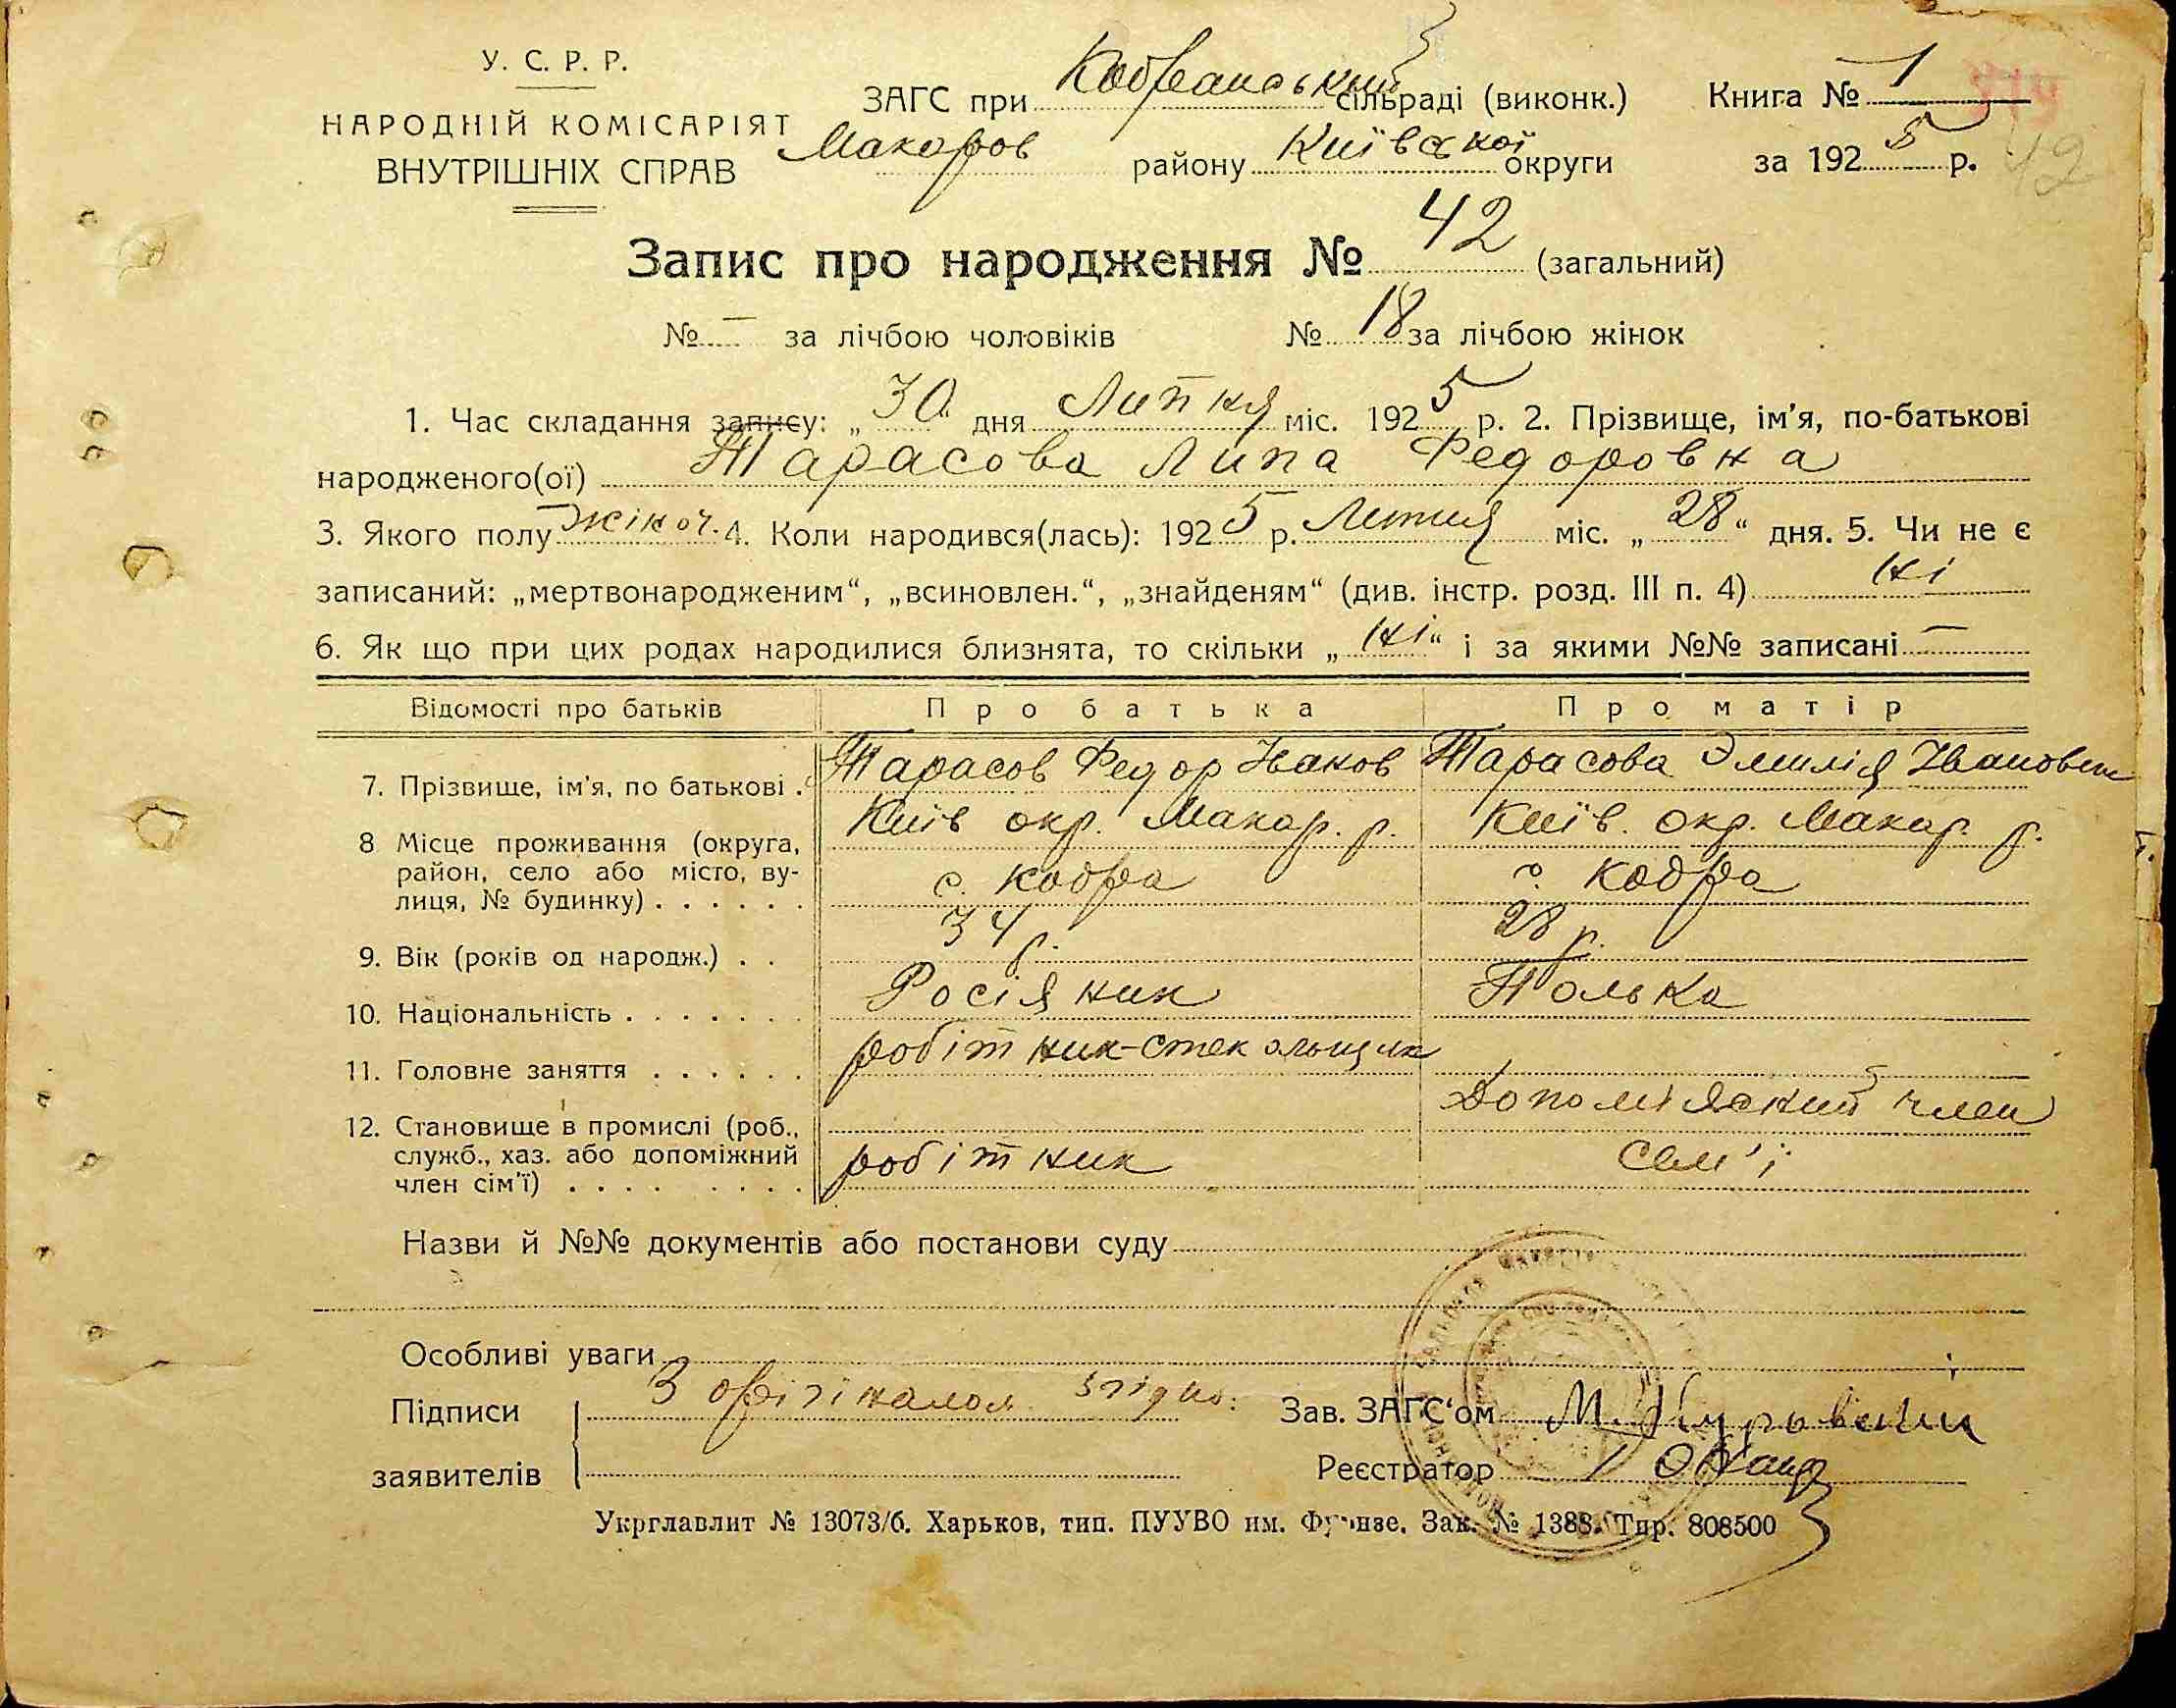 У. С. Р. Р.
НАРОДНІЙ КОМІСАРІЯТ
ВНУТРІШНІХ СПРАВ
ЗАГС при Кодранській сільраді (виконк.)
Макаров району Київської округи
Книга № 1
319
за 1925 р.
42
Запис про народження № 42 (загальний)
№ — за лічбою чоловіків № 18 за лічбою жінок
1. Час складання запису: „30" дня Липня міс. 1925 р. 2. Прізвище, ім'я, по-батькові
народженого(ої) Тарасова Ліпа Федоровна
3. Якого полу жіноч. 4. Коли народився(лась): 1925 р. Липня міс. „28" дня. 5. Чи не є
записаний: „мертвонародженим", „всиновлен.", „знайденям" (див. інстр. розд. III п. 4) Ні
6. Як що при цих родах народилися близнята, то скільки „Ні" і за якими №№ записані —
Відомості про батьків Про батька Про матір
7. Прізвище, ім'я, по батькові . Тарасов Федор Іванов Тарасова Эмилія Івановна
8 Місце проживання (округа, район, село або місто, вулиця, № будинку) . . . . . .
Київ окр. Макар. р. Київ. окр. Макар. р.
с. Кодра с. Кодра
9. Вік (років од народж.) . . 34 р. 28 р.
10. Національність . . . . . . . Росіяник Полька
11. Головне заняття . . . . . . робітник-стекольщик
12. Становище в промислі (роб., служб., хаз. або допоміжний член сім'ї) . . . . . . . .
робітник Допоміжний член
сем'ї
Назви й №№ документів або постанови суду
Особливі уваги
Підписи З орігіналом згідно:
заявителів
Зав. ЗАГС'ом
Реєстратор
Укрглавлит № 13073/6. Харьков, тип. ПУУВО им. Фрунзе. Зак. № 1388. Тир. 808500